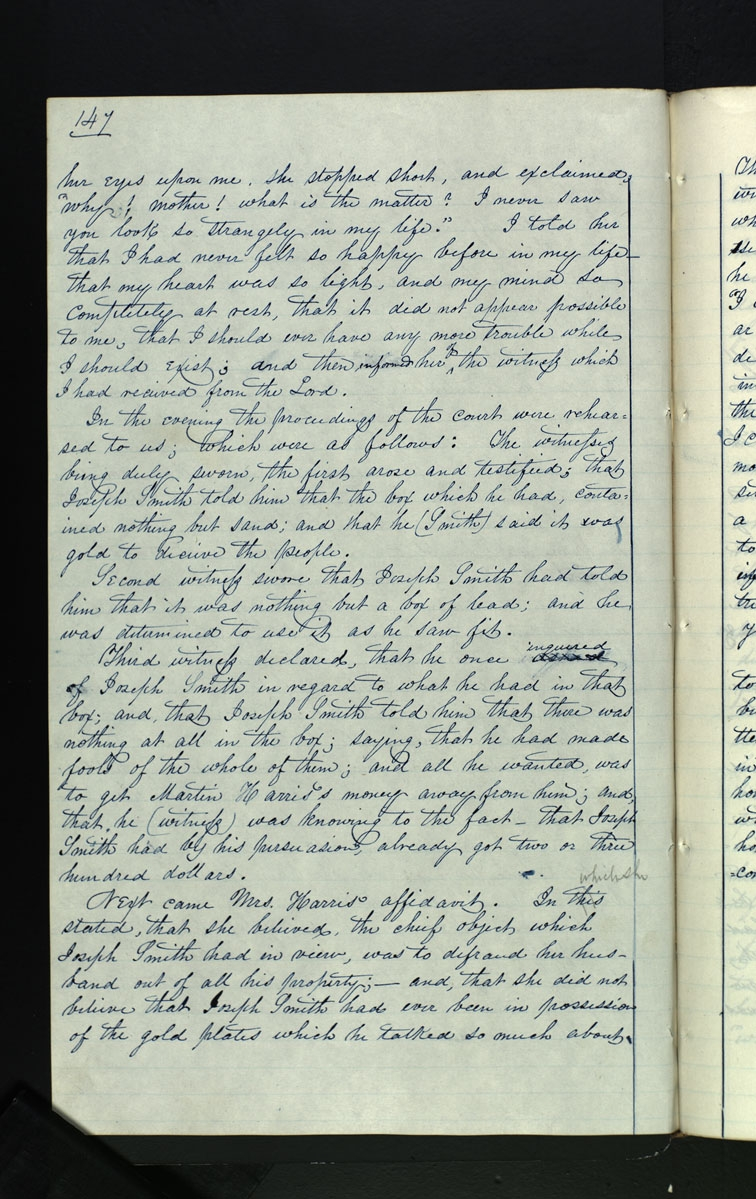 147
her eyes upon me, she stopped short, and exclaimed,
"why! mother! what is the matter? I never saw
you look so strangely in my life." I told her
that I had never felt so happy before in my life—
that my heart was so light, and my mind so
completely at rest, that it did not appear possible
to me, that I should ever have any more trouble while
I should exist; and then informed her of the witness which
I had received from the Lord.
In the evening the proceedings of the court were rehear=
sed to us; which were as follows: The witnesses
being duly sworn, the first arose and testified; that
Joseph Smith told him that the box which he had, conta=
ined nothing but sand; and that he (Smith) said it was
gold to deceive the people.
Second witness swore that Joseph Smith had told
him that it was nothing but a box of lead; and he
was determined to use it as he saw fit.
Third witness declared, that he once inquired
of Joseph Smith in regard to what he had in that
box; and, that Joseph Smith told him that there was
nothing at all in the box; saying, that he had made
fools of the whole of them; and all he wanted, was
to get Martin Harris's money away from him; and,
that, he (witness) was knowing to the fact — that Joseph
Smith had by his persuasions, already got two or three
hundred dollars.
which she
Next came Mrs. Harris' affidavit. In this
stated, that she believed, the chief object which
Joseph Smith had in view, was to defraud her hus-
band out of all his property; — and, that she did not
believe that Joseph Smith had ever been in possession
of the gold plates which he talked so much about.